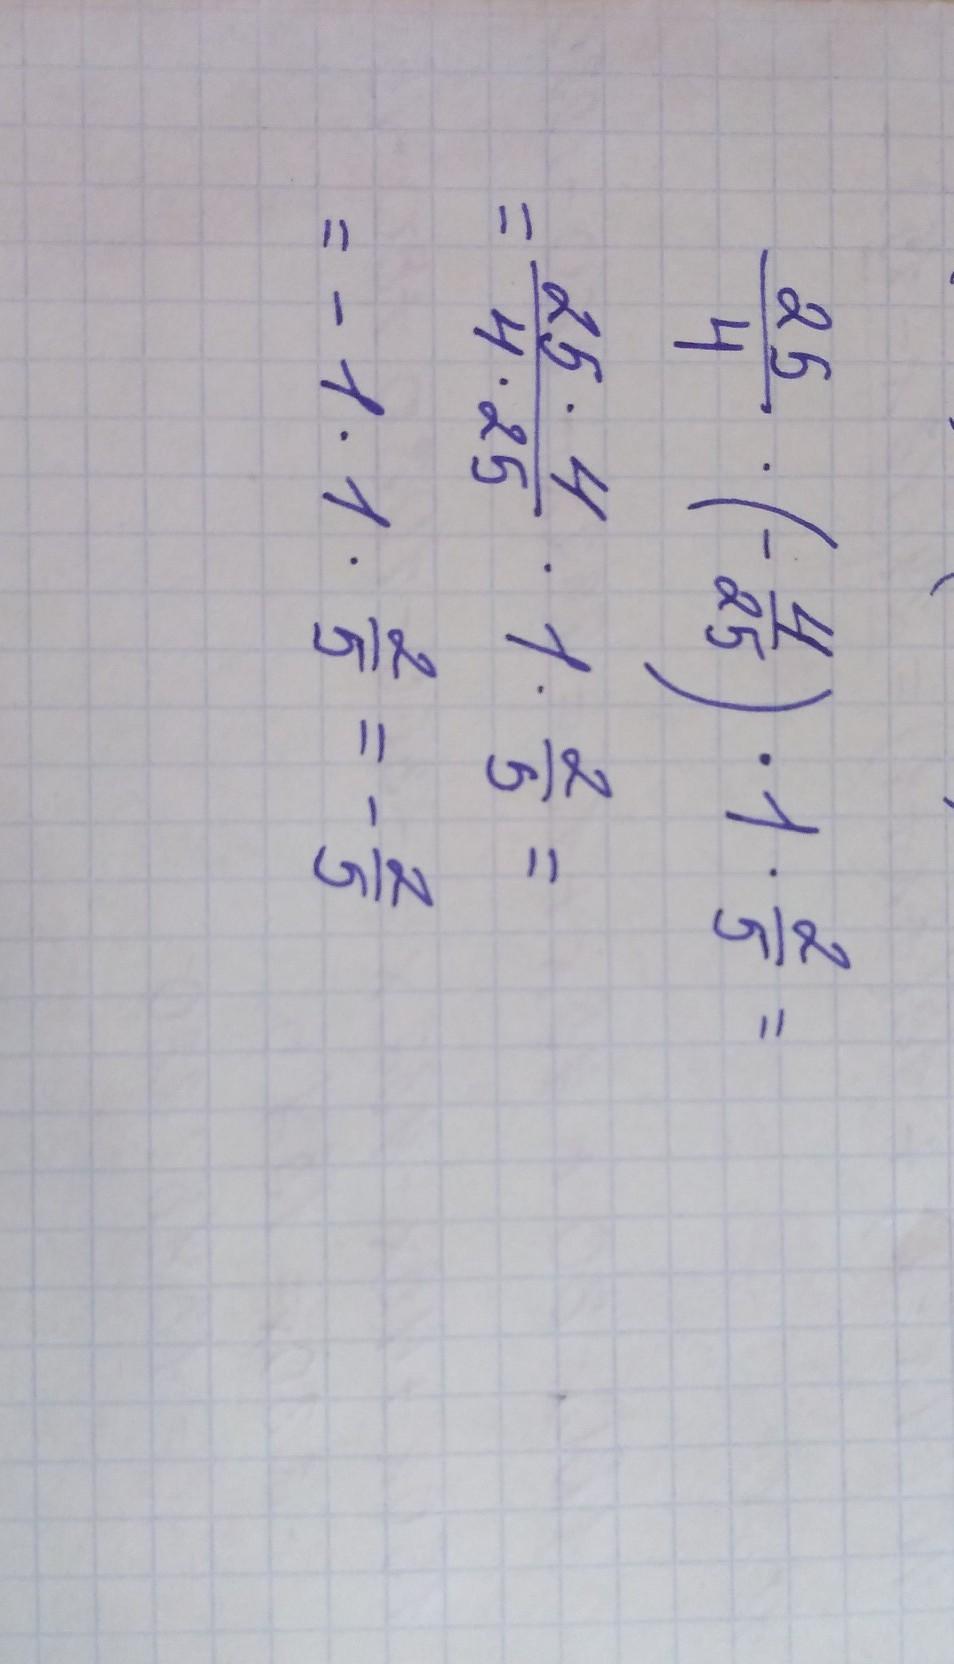 25/4 · (- 4/25) · 1 · 2/5 =
= 25 · 4 / 4 · 25 · 1 · 2/5 =
= - 1 · 1 · 2/5 = - 2/5